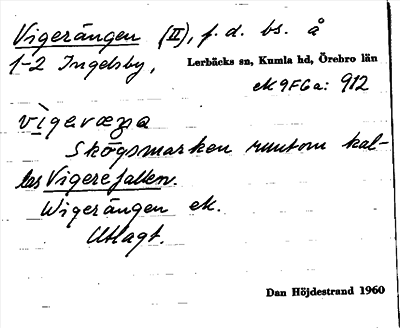 Vigerängen (II), f.d. bs. å
1-2 Ingelsby, Lerbäcks sn, Kumla hd, Örebro län
ek 9F6a: 912
Skogsmarken runtom kal-
las Vigerefallen.
Wigerängen ek.
Utlagt.
Dan Höjdestrand 1960